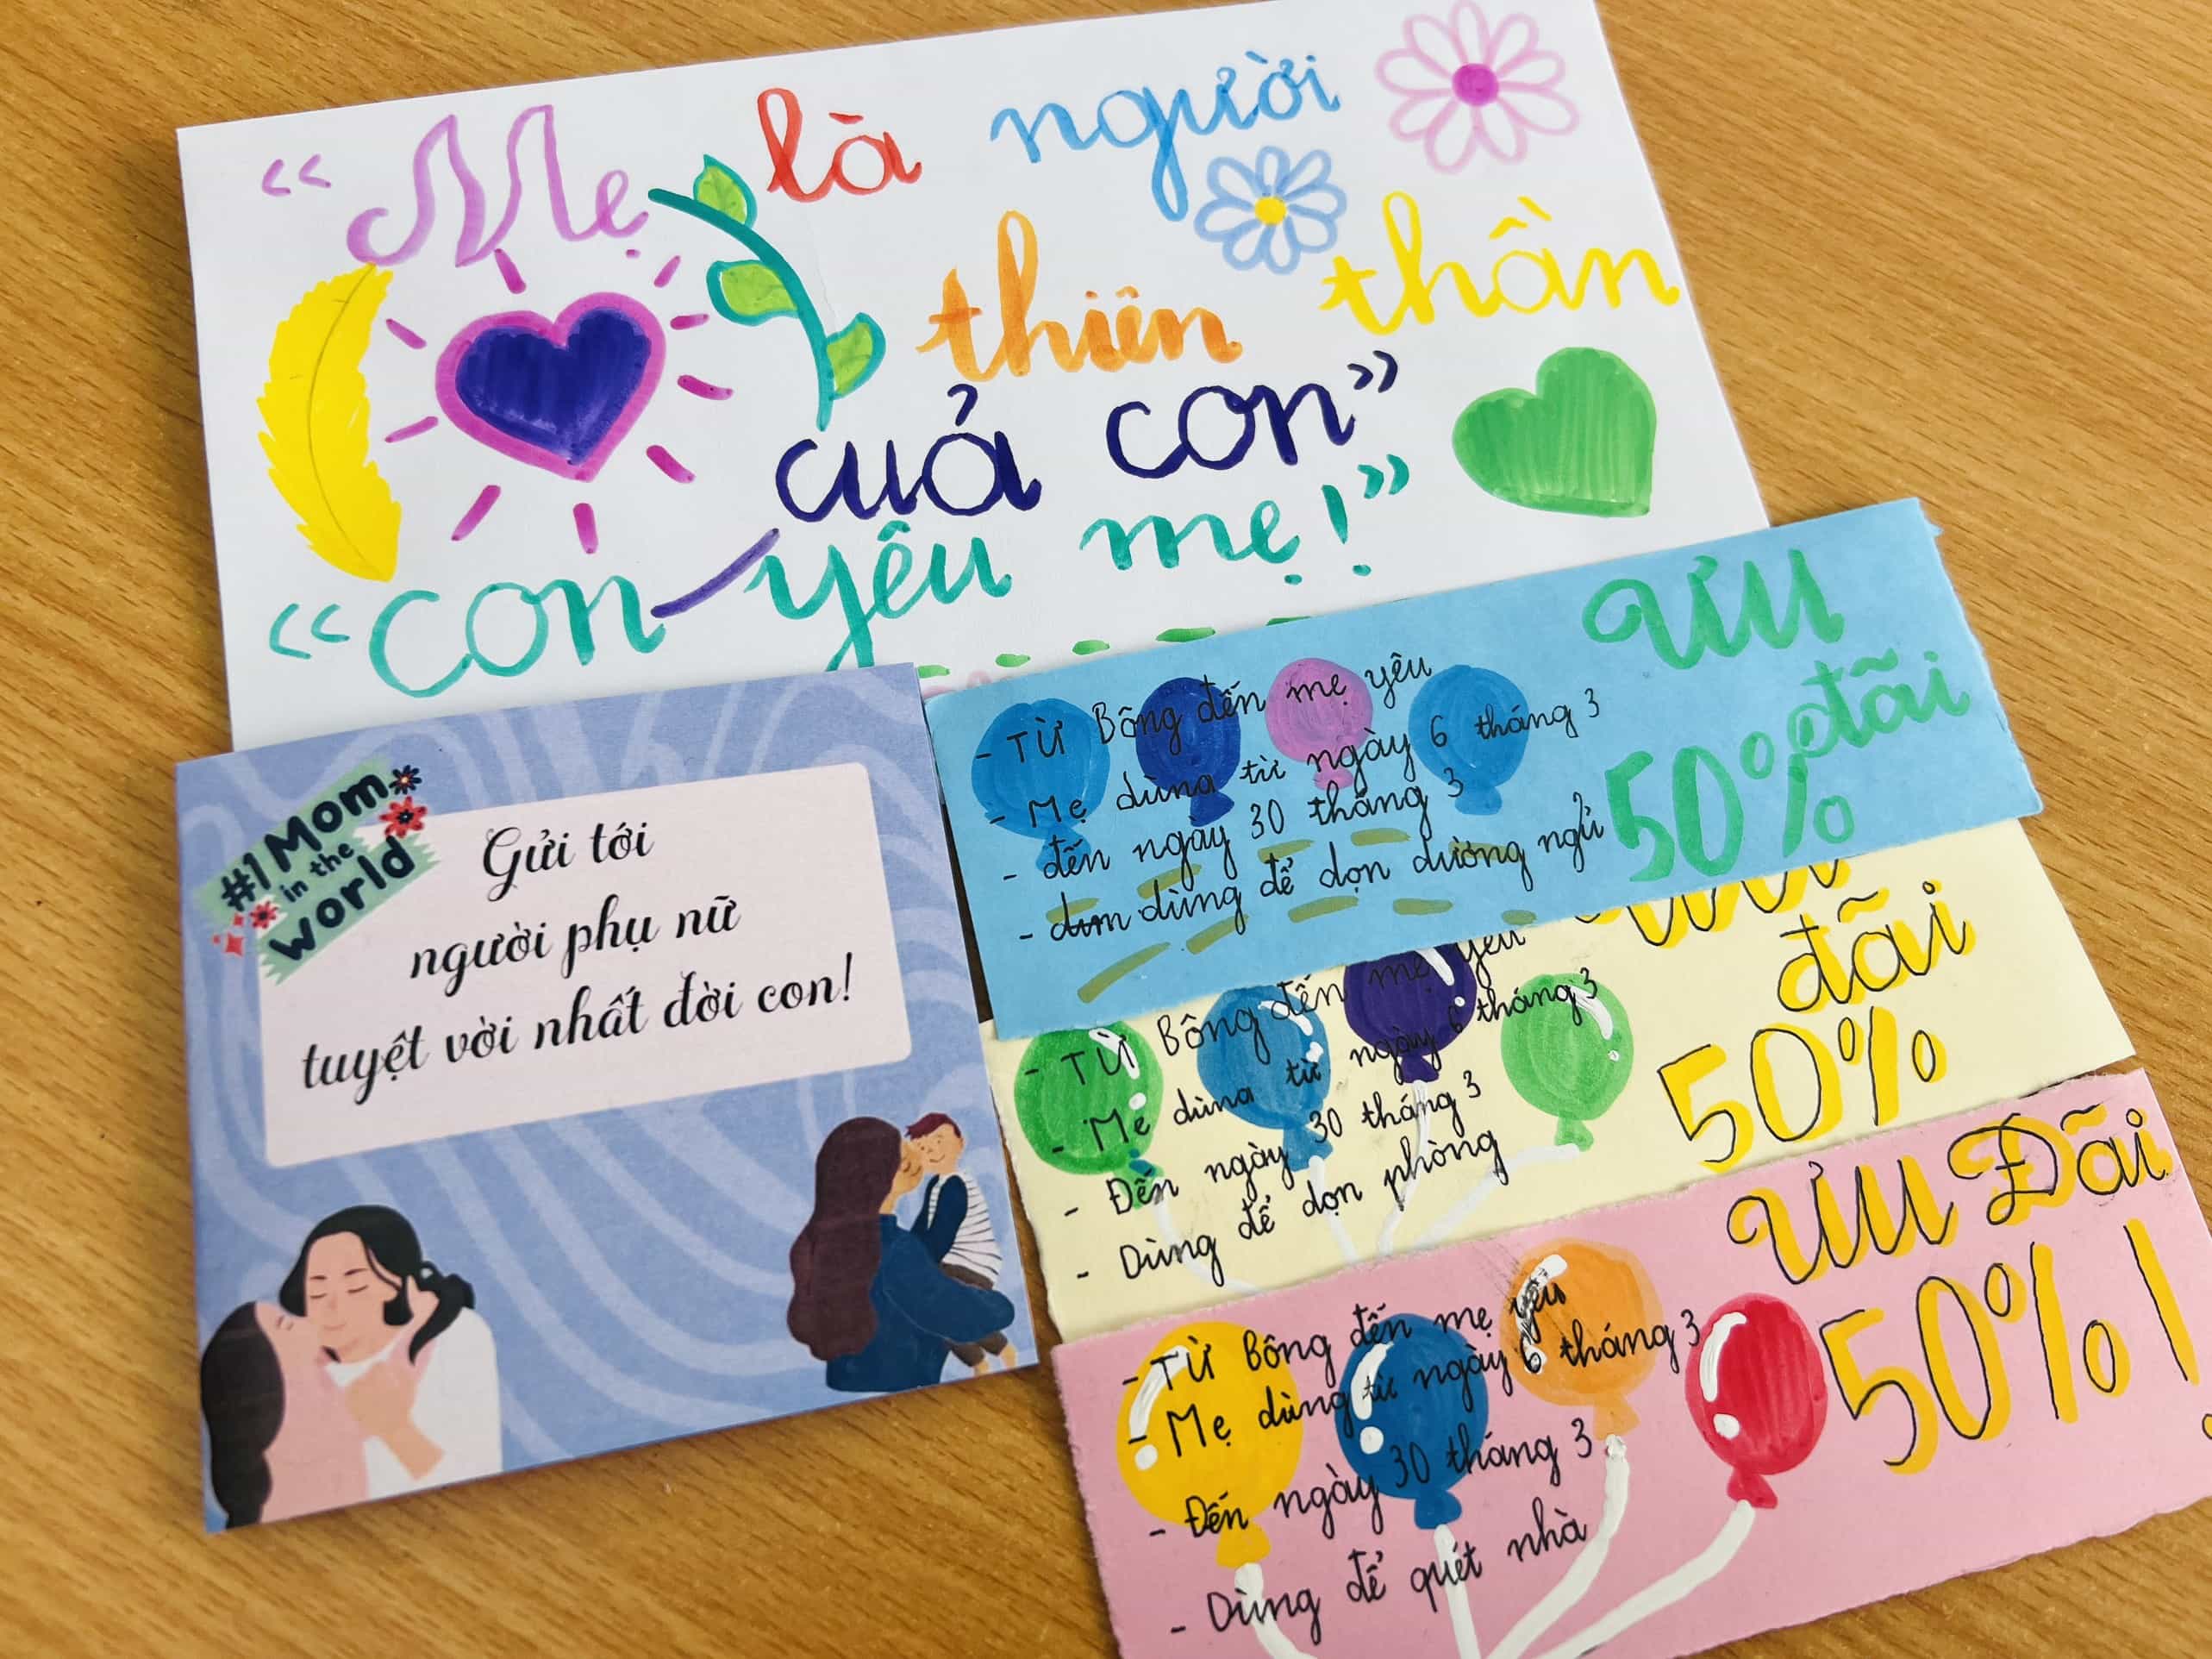 “Mẹ là người
thiên thần
cuả con”
“con yêu mẹ!”
#1 Mom
in the
world
Gửi tới
người phụ nữ
tuyệt vời nhất đời con!
ưu
đãi
50%
- Từ Bông đến mẹ yêu
- Mẹ dùng từ ngày 6 tháng 3
- đến ngày 30 tháng 3
- dùng để dọn dường ngủ
đãi
50%
- Từ Bông đến mẹ yêu
- Mẹ dùng từ ngày 6 tháng 3
- Đến ngày 30 tháng 3
- Dùng để dọn phòng
ưu Đãi
50%!
- Từ Bông đến mẹ yêu
- Mẹ dùng từ ngày 6 tháng 3
- Đến ngày 30 tháng 3
- Dùng để quét nhà